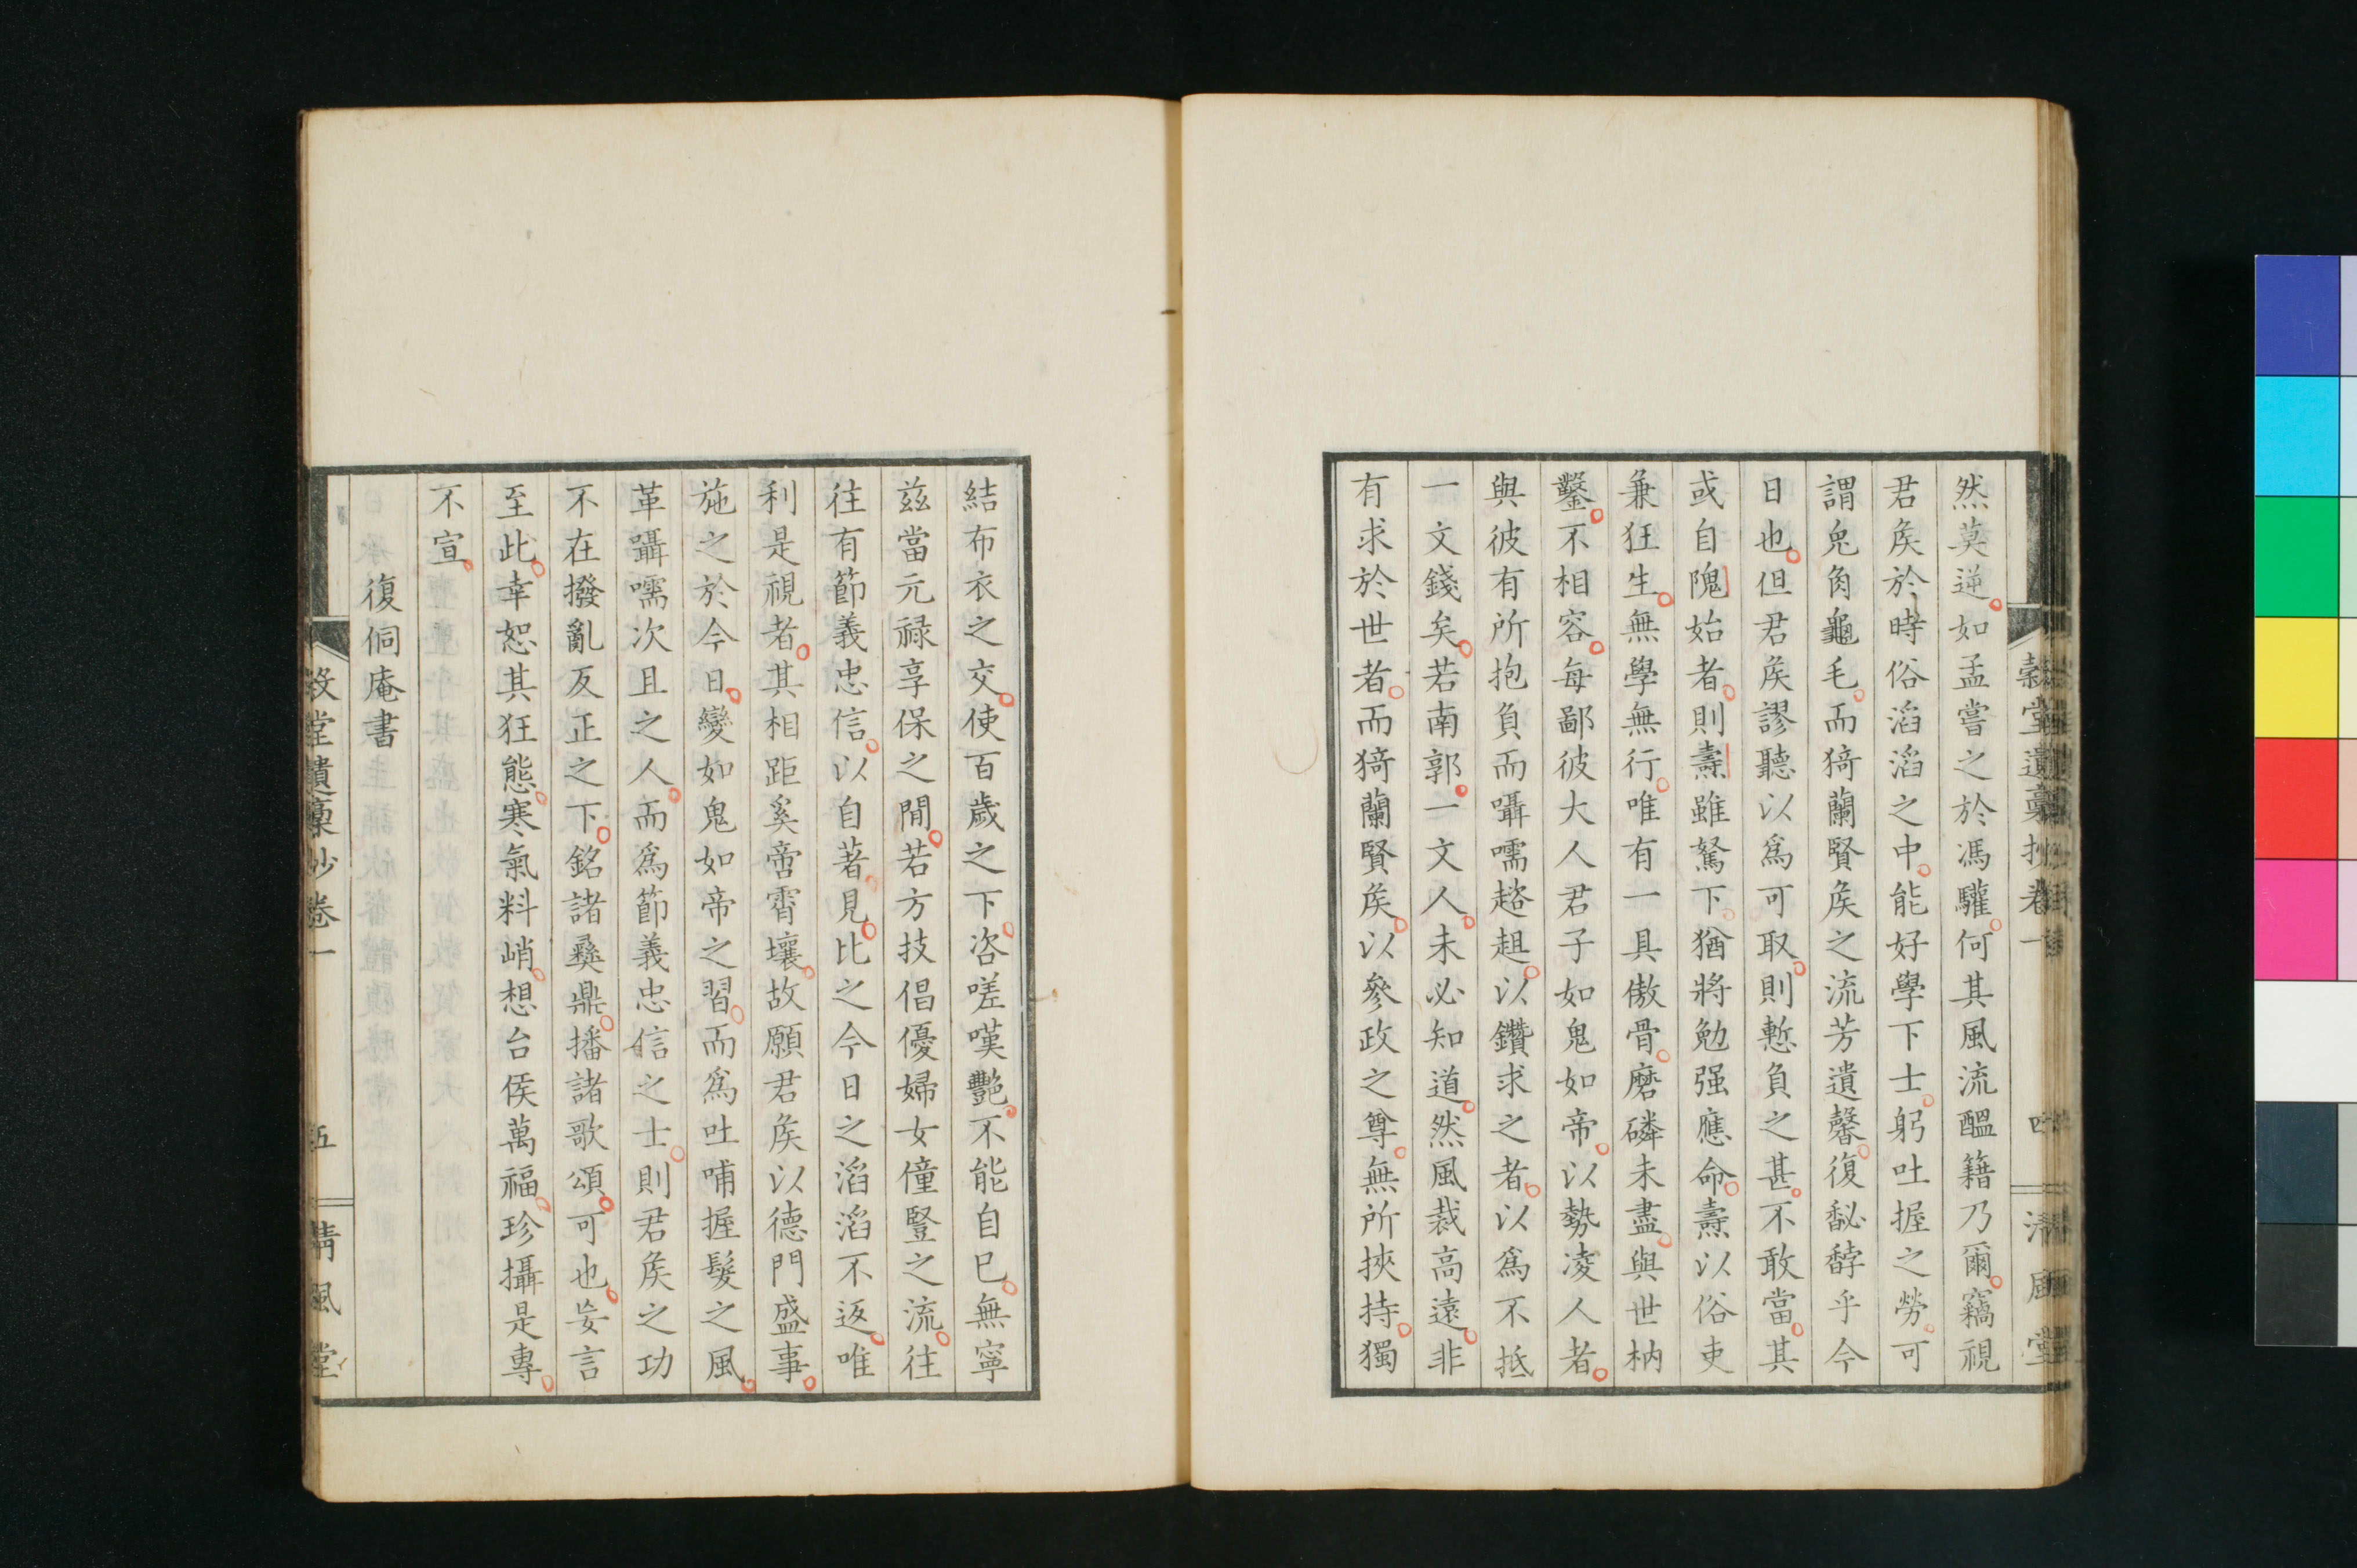 然莫逆如孟嘗之於馮驩何其風流醞籍乃爾竊視
君矦於時俗滔滔之中能好學下士躬吐握之勞可
謂兎角龜毛而猗蘭賢矦之流芳遺馨復馝馞乎今
日也但君矦謬聽以爲可取則慙負之甚不敢當其
或自隗始者則燾雖駑下猶將勉强應命燾以俗吏
兼狂生無學無行唯有一具傲骨磨磷未盡與世枘
鑿不相容每鄙彼大人君子如鬼如帝以勢凌人者
與彼有所抱負而囁嚅趦趄以鑽求之者以爲不抵
一文錢矣若南郭一文人未必知道然風裁高遠非
有求於世者而猗蘭賢矦以參政之尊無所挾持獨
結布衣之交使百歲之下咨嗟嘆艷不能自已無寧
茲當元禄享保之間若方技倡優婦女僮豎之流往
往有節義忠信以自著見比之今日之滔滔不返唯
利是視者其相距奚啻霄壤故願君矦以德門盛事
施之於今日變如鬼如帝之習而爲吐哺握髮之風
革囁嚅次且之人而爲節義忠信之士則君矦之功
不在撥亂反正之下銘諸彝鼎播諸歌頌可也妄言
至此幸恕其狂態寒氣料峭想台候萬福珍攝是專
不宣
復侗庵書
堂遺稾抄卷一
五
清風堂